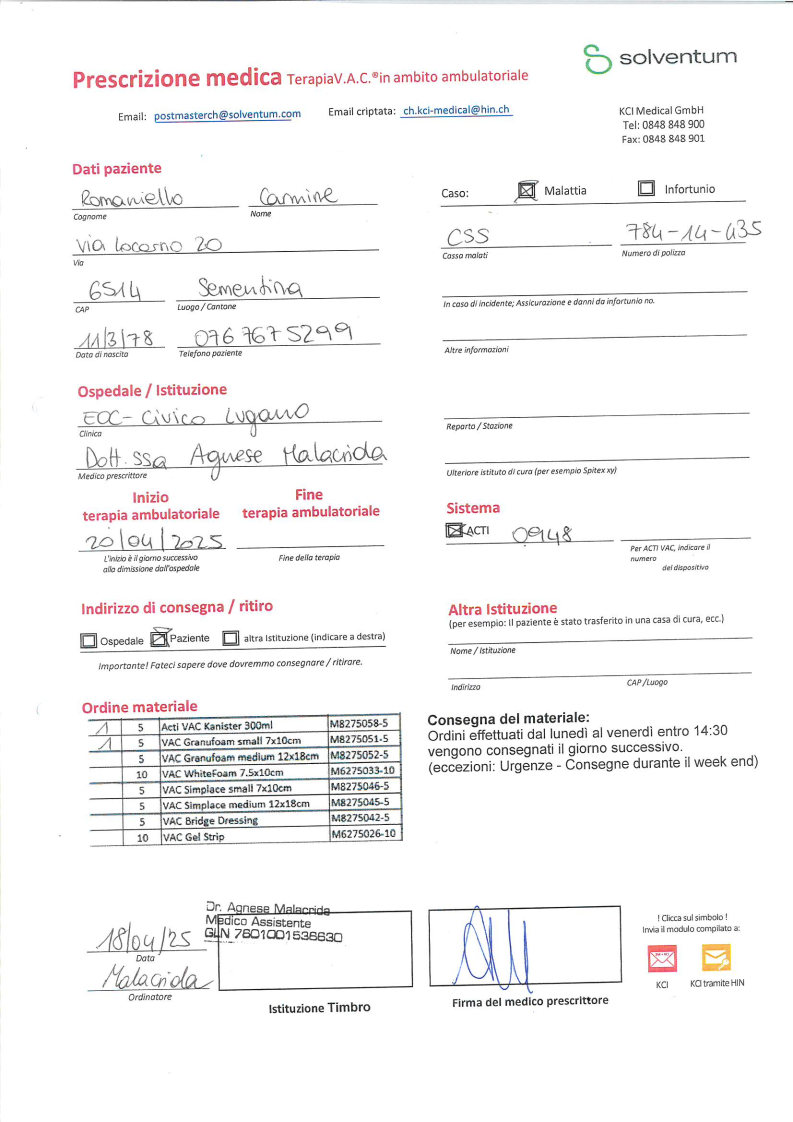 solventum
Prescrizione medica TerapiaV.A.C.®in ambito ambulatoriale
Email: postmasterch@solventum.com Email criptata: ch.kci-medical@hin.ch
KCI Medical GmbH
Tel: 0848 848 900
Fax: 0848 848 901
Dati paziente
Romaniello Carmine
Cognome Nome
Via Locarno 20
Via
6514 Sementina
CAP Luogo / Cantone
11/3/78 076 767 5299
Data di nascita Telefono paziente
Caso: Malattia Infortunio
CSS 784-14-435
Cassa malati Numero di polizza
In caso di incidente; Assicurazione e danni da infortunio no.
Altre informazioni
Ospedale / Istituzione
EOC- Civico Lugano
Clinica
Dott.ssa Agnese Malacrida
Medico prescrittore
Reparto / Stazione
Ulteriore istituto di cura (per esempio Spitex xy)
Inizio
terapia ambulatoriale
Fine
terapia ambulatoriale
20/04/2025
L'inizio è il giorno successivo
alla dimissione dall'ospedale
Fine della terapia
Sistema
ACTI 0948
Per ACTI VAC, indicare il
numero
del dispositivo
Indirizzo di consegna / ritiro
Ospedale Paziente altra Istituzione (indicare a destra)
Importante! Fateci sapere dove dovremmo consegnare / ritirare.
Altra Istituzione
(per esempio: Il paziente è stato trasferito in una casa di cura, ecc.)
Nome / Istituzione
Indirizzo CAP /Luogo
Ordine materiale
1 5 Acti VAC Kanister 300ml M8275058-5
1 5 VAC Granufoam small 7x10cm M8275051-5
5 VAC Granufoam medium 12x18cm M8275052-5
10 VAC WhiteFoam 7.5x10cm M6275033-10
5 VAC Simplace small 7x10cm M8275046-5
5 VAC Simplace medium 12x18cm M8275045-5
5 VAC Bridge Dressing M8275042-5
10 VAC Gel Strip M6275026-10
Consegna del materiale:
Ordini effettuati dal lunedì al venerdì entro 14:30
vengono consegnati il giorno successivo.
(eccezioni: Urgenze - Consegne durante il week end)
18/04/25
Data
Malacrida
Ordinatore
Dr. Agnese Malacrida
Medico Assistente
GLN 7601001536630
Istituzione Timbro
Firma del medico prescrittore
! Clicca sul simbolo !
Invia il modulo compilato a:
KCI KCI tramite HIN